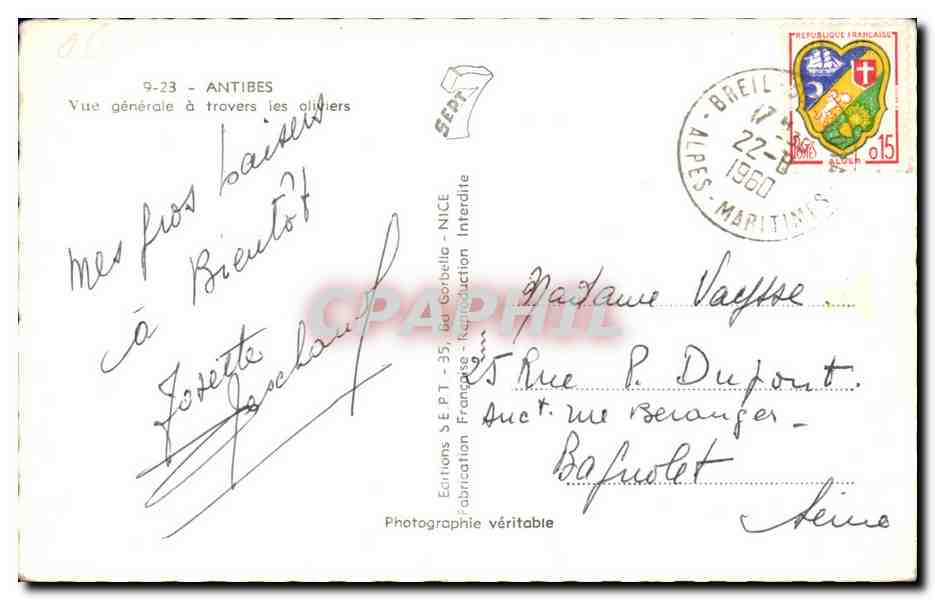 9-23 - ANTIBES
Vue générale à travers les oliviers
SEPT
Mes gros baisers
à Bientôt
Josette
Editions SEPT - 35, Bd Gorbella - NICE
Fabrication Française - Reproduction Interdite
Photographie véritable
REPUBLIQUE FRANÇAISE
POSTES
ALGER
0,15
BREIL-
17 H
22-8
1960
ALPES-MARITIMES
CPAPHIL
Madame Vaysse.
25 Rue P. Dupont.
Anct. rue Beranger -
Bagnolet
Seine